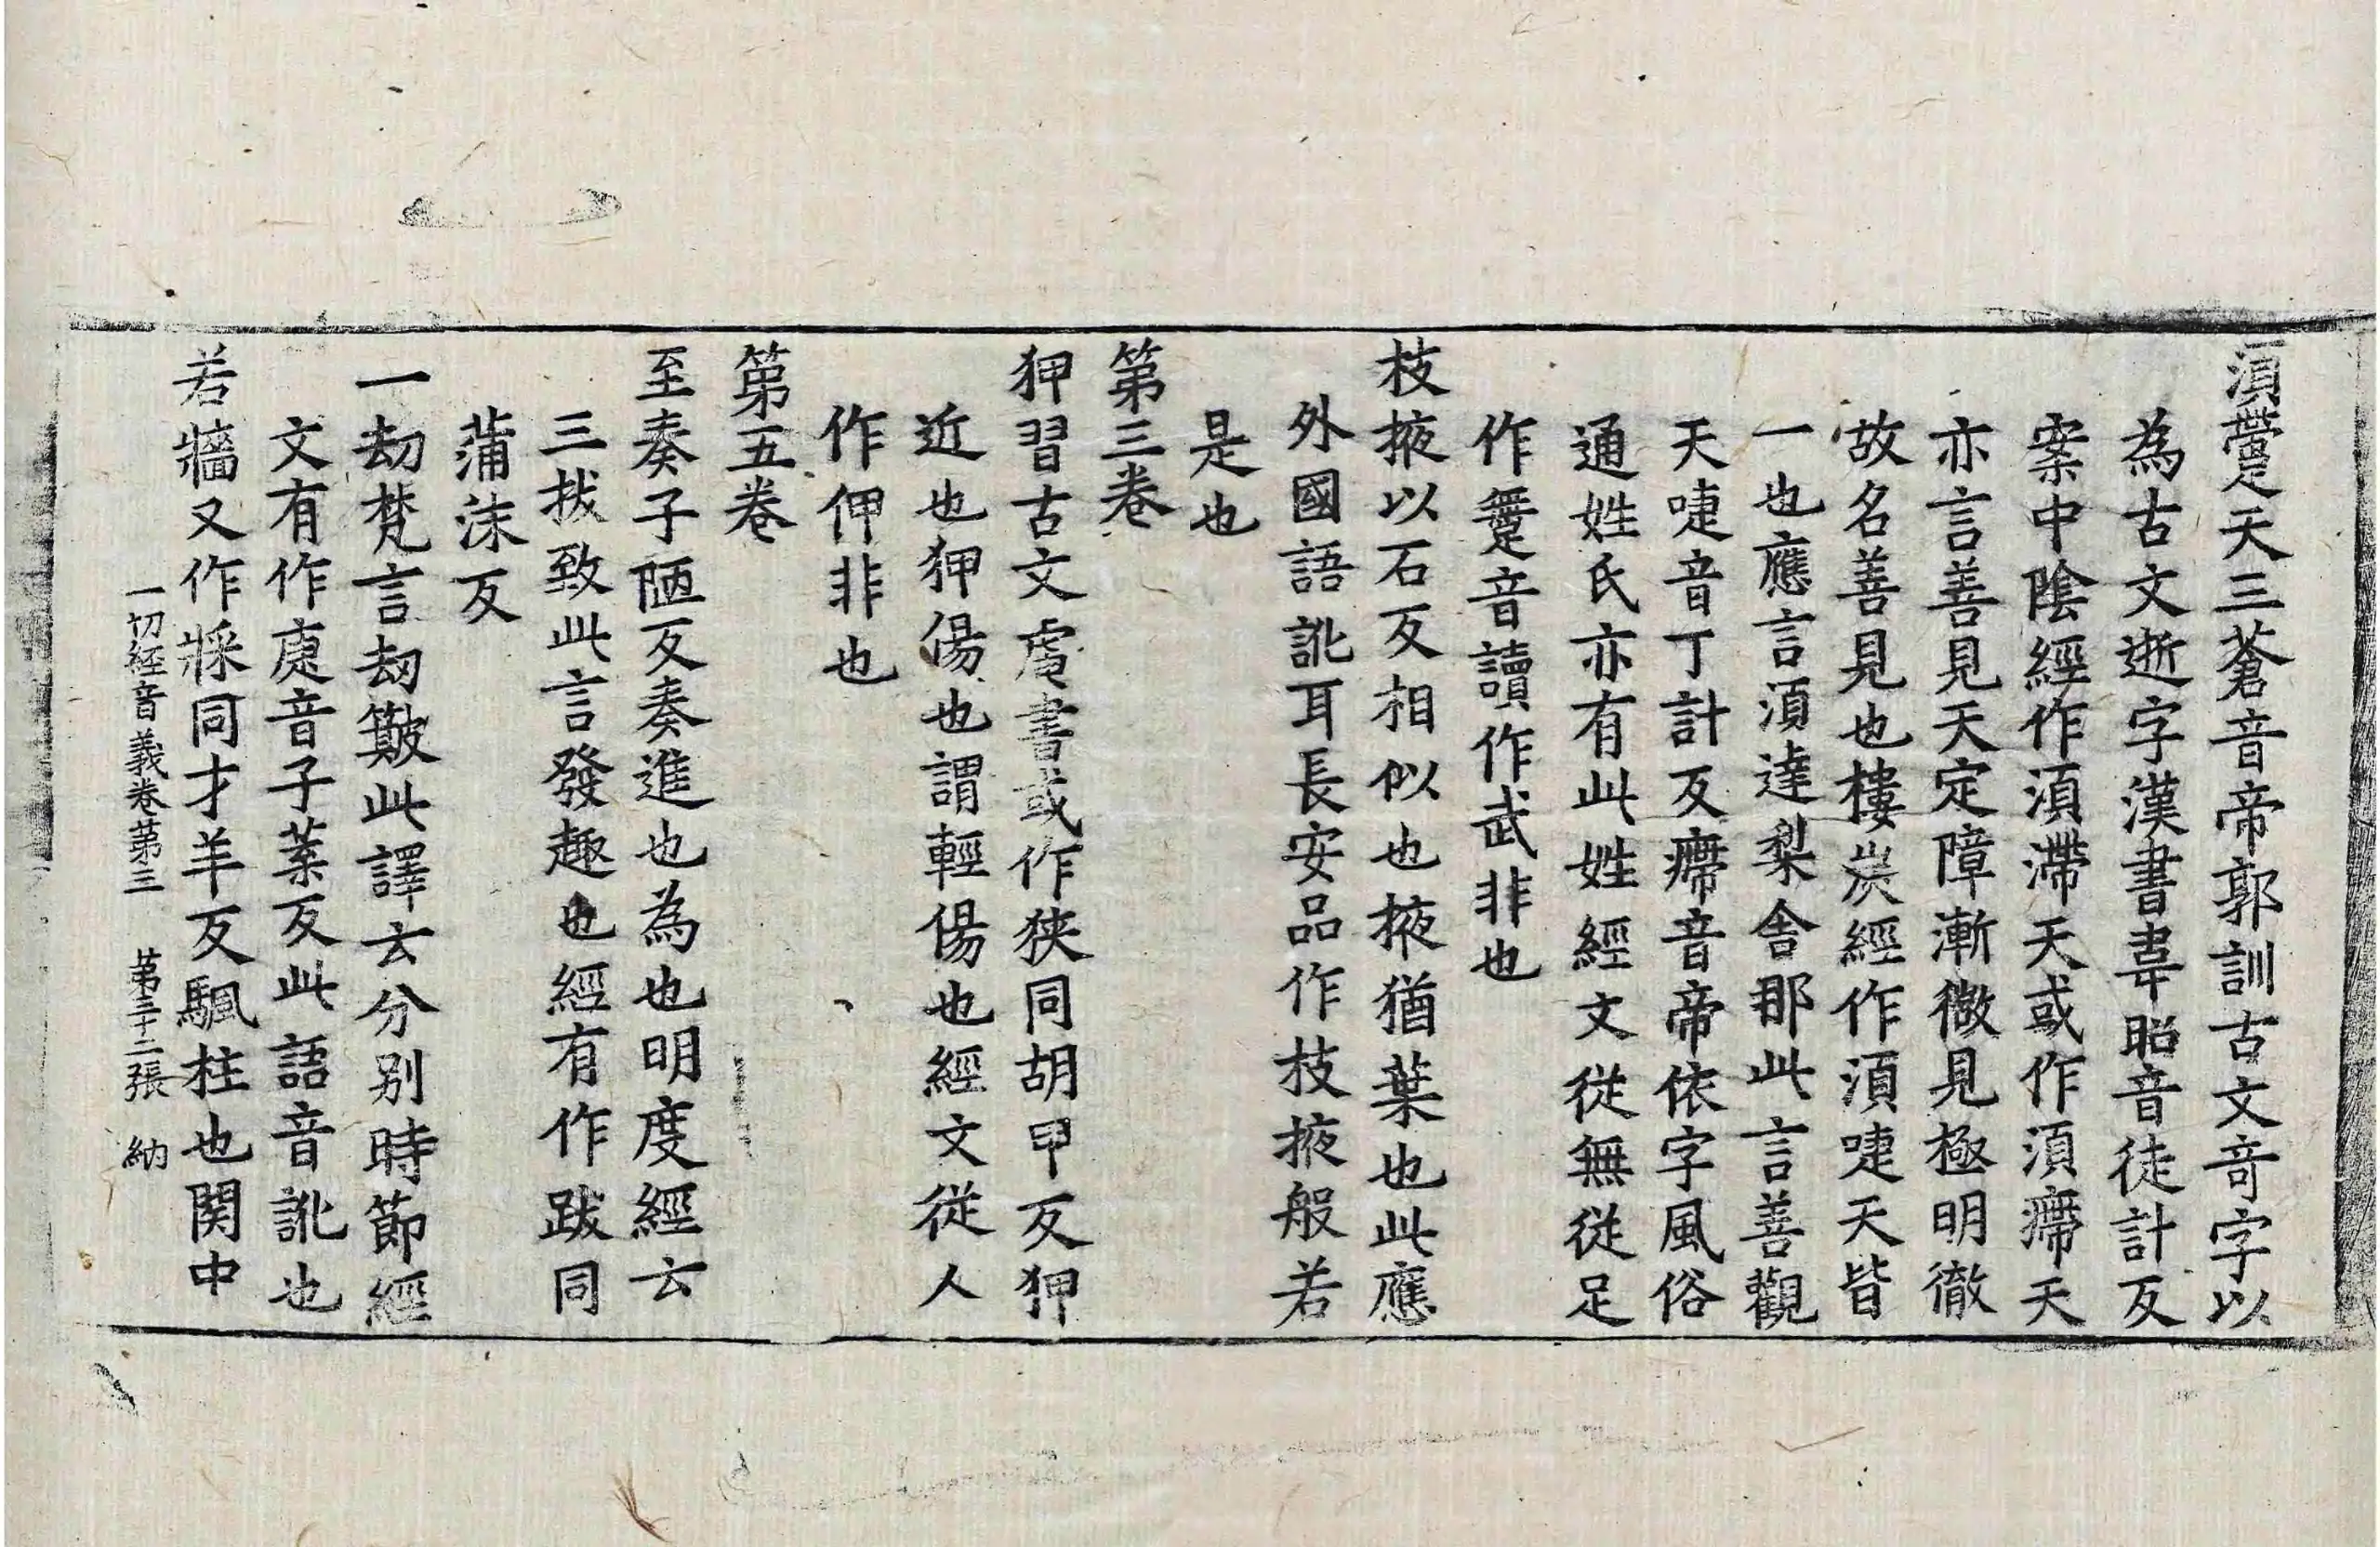 須䠠天三蒼音帝郭訓古文竒字以
為古文逝字漢書韋昭音徒計反
案中陰經作須滯天或作須㿃天
亦言善見天定障漸微見極明徹
故名善見也樓炭經作須㖷天皆
一也應言須達梨舍那此言善觀
天㖷音丁計反㿃音帝依字風俗
通姓氏亦有此姓經文從無從足
作䠠音讀作武非也
枝掖以石反相似也掖猶葉也此應
外國語訛耳長安品作枝掖般若
是也
第三卷
狎習古文䖍書或作狹同胡甲反狎
近也狎傷也謂輕傷也經文從人
作伊非也
第五卷
至奏子陋反奏進也為也明度經云
三拔致此言發趣也經有作跋同
蒲沫反
一劫梵言劫簸此譯云分別時節經
文有作㢑音子葉反此語音訛也
若牆又作牀同才羊反颿柱也関中
一切經音義卷第三 第三十二張 納